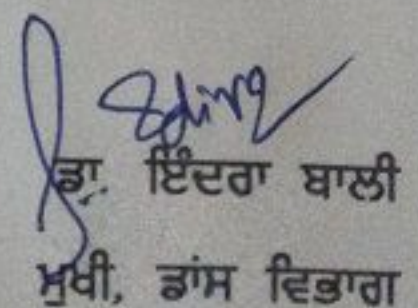 ਡਾ. ਇੰਦਰਾ ਬਾਲੀ
ਮੁਖੀ, ਡਾਂਸ ਵਿਭਾਗ